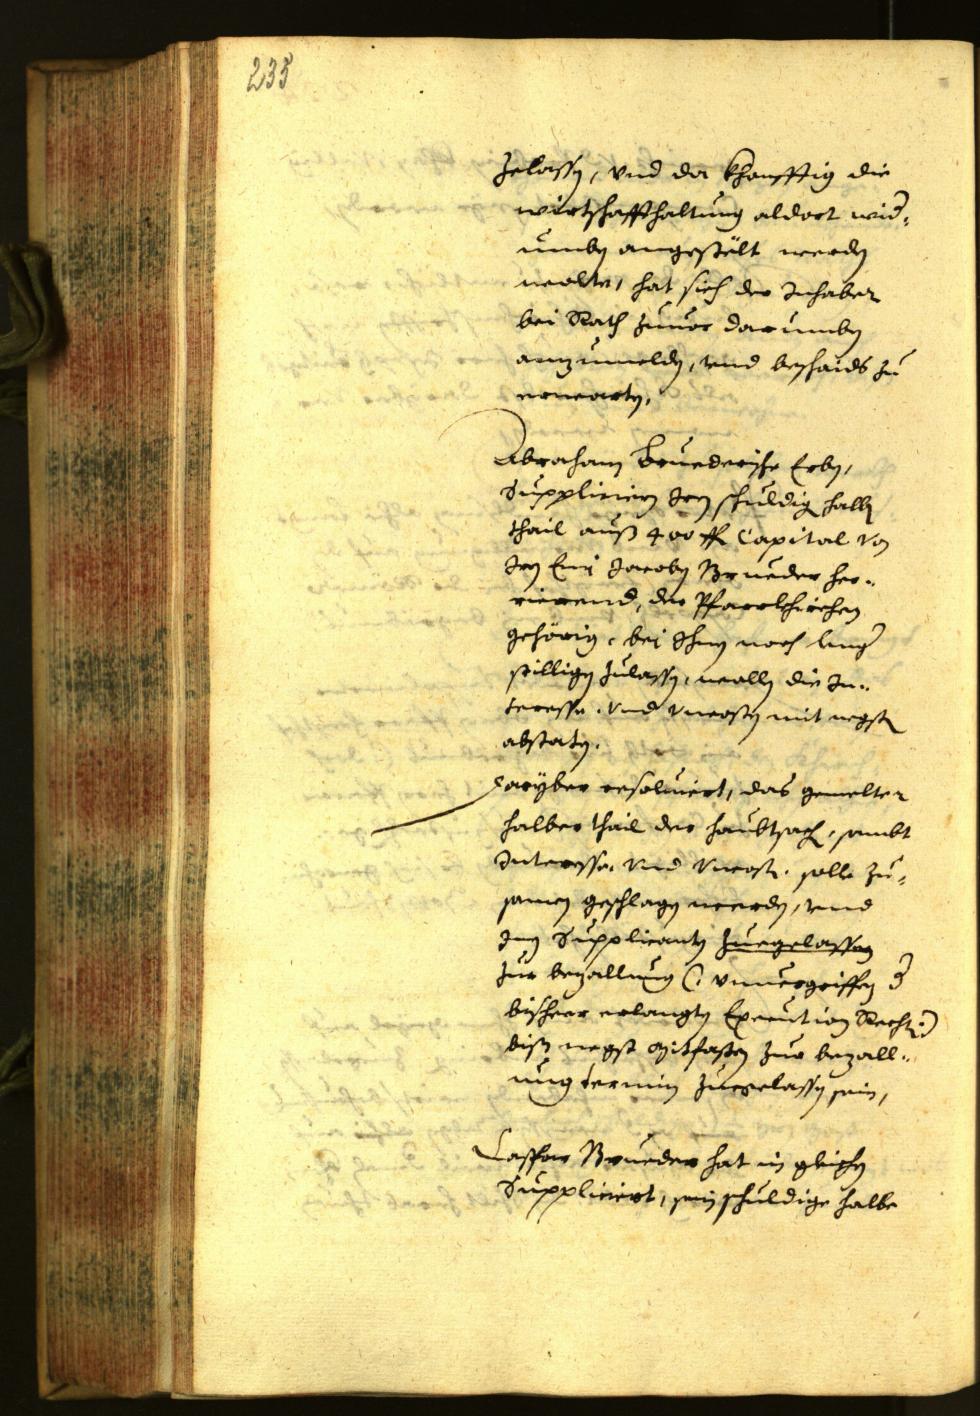 235
zelassen, vnd da khonfftig die
wirtschaffthaltung aldort wid-
umben angestelt werden
wolte, hat sich der Inhaber
bei Rath zuuor darumben
anzumelden, vnd beschaids zu
erwarten.
Abraham Bruederische Erben,
Supplicieren Iren schuldig halben
thail auß 400 fl Capital von
Iren Eni Jacoben Brueder her-
rierend, der Pfarrkhirchen
gehörig, bei Ihnen noch lenger
stilligen zulassen, wellen die In-
teresse vnd vncosten mit negsten
abstaten.
Darüber resoluiert, das gemelter
halber thail der haubtsach, sambt
Interesse vnd vncosten solle zu-
samen geschlagen werden, vnd
Inen Supplicanten zuegelassen
zur bezallung (: vnuergriffen der
bisheer erlangten Execution Rechten :)
biß negst mitfasten zur bezall-
ung termin zuegelassen sein,
Casper Brueder hat in gleichen
Suppliciert, sein schuldige halbe